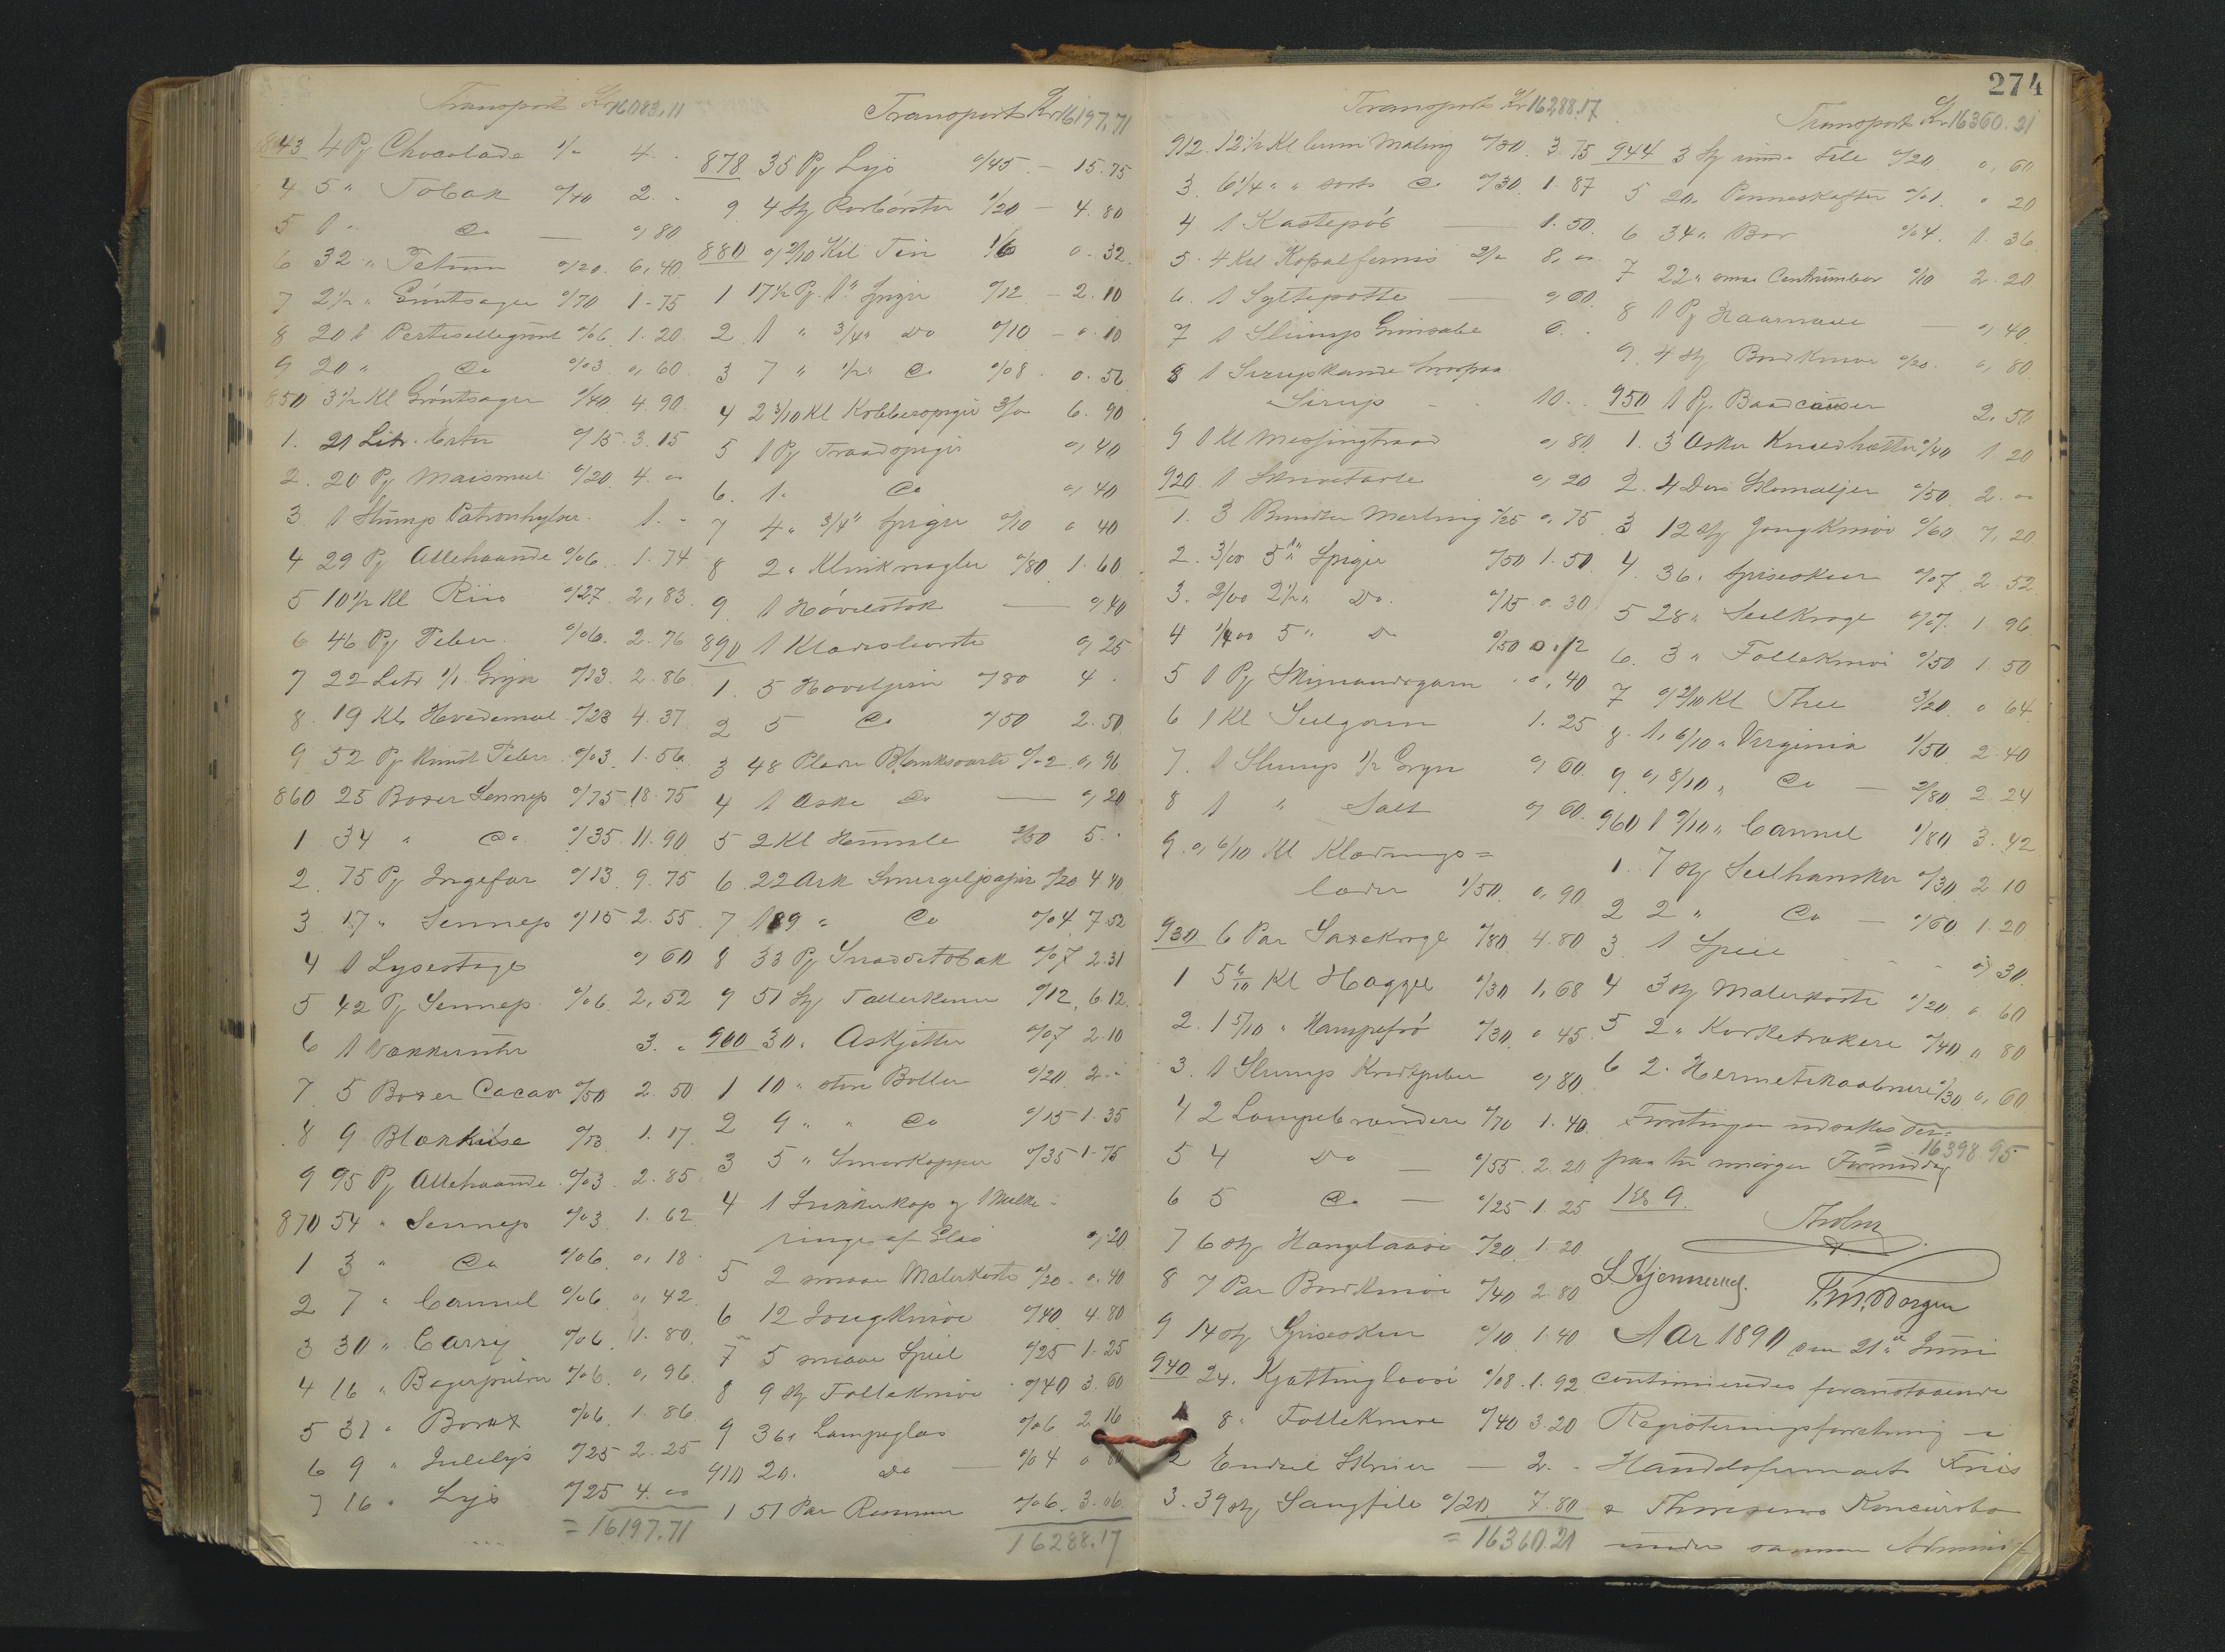 Transport Kr 16083.11
843 4 Pf Chocolade 1/" 4. "
4 5 " Tobak 0/40 2. "
5 1 " Do — 0,80
6 32 " 0/20 6,40
7 2 1/2 " Gröntsager 0/70 1.75
8 20 0/06 1.20
9 20 " Do 0/03 0,60
850 3 1/2 Kl Gröntsager 1/40 4.90
1. 21 Litr. Erter 0/15 3.15
2. 20 Pf Maismel 0/20 4. "
3 1 Slump Patronhylser 1. "
4 29 Pf Allehaande 0/06 1.74
5 10 1/2 Kl Riis 0/27 2,83
6 46 Pf Peber 0/06 2.76
7 22 Litr 1/1 Gryn 0/13 2.86
8 19 Kl Hvedemel 0/23 4.37
9 52 Pf Peber 0/03 1.56
860 25 Boxer Sennep 0/75 18.75
1 34 " Do 0/35 11.90
2 75 Pf Ingefær 0/13 9.75
3 17 " Sennep 0/15 2.55
4 1 Lysestage 0,60
5 42 Pf Sennep 0/06 2,52
6 1 Vækkeruhr 3. "
7 5 Boxer Cacao 0/50 2.50
8 9 Blækhuse 0/13 1.17
9 95 Pf Allehaande 0/03 2.85
870 54 " Sennep 0/03 1.62
1 3 " Do 0/06 0,18
2 7 " Cannel 0/06 0,42
3 30 " Carry 0/06 1.80
4 16 " Bagerpulver 0/06 0,96
5 31 " Borax 0/06 1.86
6 9 " Julelys 0/25 2.25
7 16 " Lys 0/25 4.00
= 16197.71
Transport Kr 16197,71
878 35 Pf Lys 0/45 — 15.75
9 4 Stk 1/20 — 4.80
880 0,2/10 Kil Tin 1/6 0.32
1 17 1/2 Pf. 1" Spiger 0/12 — 2.10
2 1 " 3/4" Do 0/10 — 0.10
3 7 " 1/2" Do 0/08 0.56
4 2 3/10 Kl Kobberspiger 3/" 6.90
5 1 Pf Traadspiger 0,40
6. 1 " Do 0,40
7 4 " 3/4" Spiger 0/10 0 40
8 2 " Klinknagler 0/80 1.60
9 1 Hövelstok — 0,40
890 1 Klædesbörste 0,25
1. 5 Høveljern 0/80 4 "
2 5 Do 0/50 2.50
3 48 Blanksværte 0/02 0,96
4 1 Æske Do — 0,20
5 2 Kl Humle 2/50 5. "
6 22 Ark Smergelpapir 0/20 4 40
7 189 " Do 0/04 7.52
8 33 Pf Snaddetobak 0/07 2.31
9 51 Stk Tallerkener 0/12 6.12
900 30 " Askjetter 0/07 2.10
1 10 " store Boller 0/20 2. "
2 9 " " Do 0/15 1.35
3 5 " Smørkopper 0/35 1.75
4 1 Sukkerkop & 1 Melke-
af Glas 0,20
5 2 smaa Malerkoste 0/20 0,40
6 12 Jongknive 0/40 4.80
7 5 smaae Speil 0/25 1.25
8 9 Stk Folleknive 0/40 3.60
9 36 " Lampeglas 0/06 2 16
910 20 " Do — 0/04 0 80
1 51 Par Remmer 0/06 3.06
16288.17
274
Transport Kr 16288.17
912. 12 1/2 Kl brun Maling 0/30 3.75
3. 6 1/4 " " sort Do 0/30 1.87
4 1 Kastepös — 1.50
5. 4 Kil Kopalfernis 2/" 8,00
6. 1 Syltepotte — 0,60
7 1 Slump Grönsæbe 6. "
8 1 Sirupskande
Sirup 10. "
9 1 Kl Messingtraad 0,80
920 1 Skrivetavle 0,20
1. 3 Bundter Merling 0/25 0,75
2. 3/00 3" Spiger 0/50 1.50
3. 2/00 2 1/2" Do. 0/15 0.30
4 1/400 5" Do 0/50 0.12
5 1 Pf Skimandsgarn 0,40
6 1 Kl Seilgarn 1.25
7. 1 Slump 1/2 Gryn 0,60
8 1 " Salt 0,60
9. 0,6/10 Kl Klædnings=
læder 1/50 0,90
930 6 Par Saxekroge 0/80 4.80
1 5 6/10 Kl Haggel 0/30 1,68
2. 1 5/10 " Hampefrö 0/30 0 45
3. 1 Slump Kridtpiber 0,80
4 2 Lampebrændere 0/70 1.40
5 4 Do — 0/55 2.20
6 5 Do — 0/25 1.25
7 6 Stk Hængelaase 0/20 1.20
8 7 Par Bordknive 0/40 2.80
9 14 Stk Spiseskeer 0/10 1.40
940 24. Kjættinglaase 0/08 1.92
1 8 " Follekniver 0/40 3.20
2 Endel Skruer — 2. "
3. 39 Stk Sangfile 0/20 7.80
= 16360.21
Transport Kr 16360.21
944 3 Stk runde File 0/20 0,60
5 20 " Penneskafter 0/01 0 20
6 34 " Bor 0/04 1.36
7 22 " smaa Centrumbor 0/10 2.20
8 1 Pf Haarnaale — 0,40
9. 4 Stk Bordknive 0/20 0,80
950 1 Pf. 2,50
1. 3 Æsker Knaldhætter 0/40 1 20
2. 4 0/50 2.00
3 12 Stk Jongknive 0/60 7,20
4. 36 " Spiseskeer 0/07 2.52
5 28 " Seilkroge 0/07 1 96
6. 3 " Folleknive 0/50 1 50
7 0,2/10 Kl Thee 3/20 0 64
8. 1,6/10 " Virginia 1/50 2.40
9 0,8/10 " Do — 2/80 2 24
960 1 9/10 " Cannel 1/80 3.42
1. 7 Stk Seilhansker 0/30 2.10
2 2 " Do — 0/60 1.20
3 1 Speil 0,30
4 3 Stk Malerkoste 0/20 0 60
5 2 " Korketrækere 0/40 0 80
6 2 " Hermetikaabnere 0/30 0,60
Forretningen udsattes der-
= 16398.95
paa til imorgen Formiddag
Kl 9.
Tholm
S. Kjönneröd.
T. M. Borgen
Aar 1890 den 21de Juni
continueredes foranstaaende
Registreringsforretning i
Handelsfirmaet Friis
& Thoresens Koncursbo
under samme Admini-